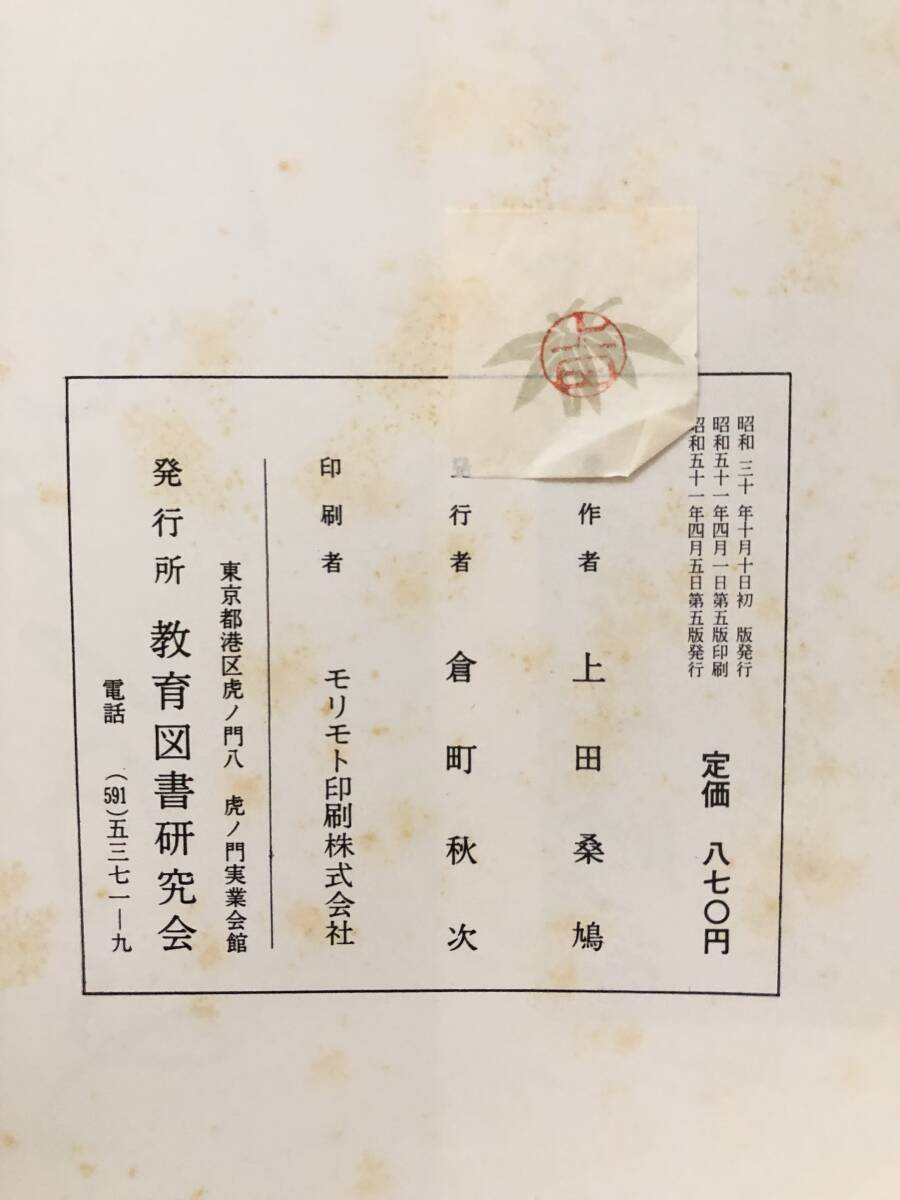 昭和 三十 年十月十日初 版発行
昭和五十一年四月一日第五版印刷
昭和五十一年四月五日第五版発行
定価 八七〇円
作者 上田桑鳩
行者 倉町秋次
印刷者 モリモト印刷株式会社
東京都港区虎ノ門八 虎ノ門実業会館
発行所 教育図書研究会
電話 (591)五三七一―九